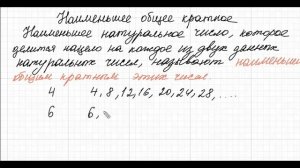 Наименьшее общее кратное
Наименьшее натуральное число, которое
делится нацело на каждое из двух данных
натуральных чисел, называют наименьшим
общим кратным этих чисел
4 4, 8, 12, 16, 20, 24, 28, ....
6 6,